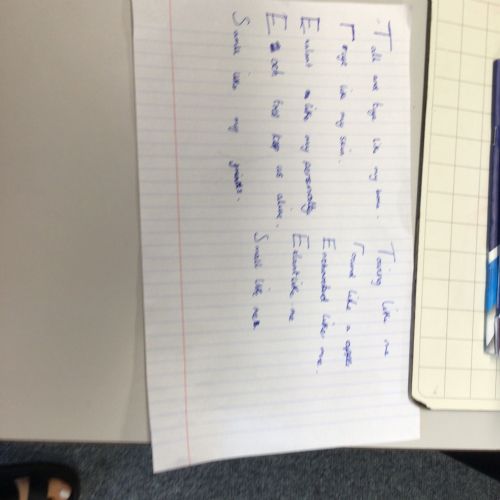 Tall and huge like my
Fragil like my skin.
Exelent like my personality
Each tree keep us alive.
Small like my
Towing like me
round like a apple
Enchanted like me.
Elant like me
Small like me